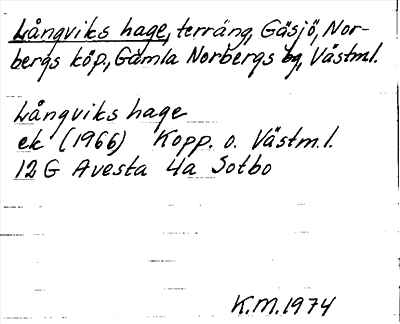 Långviks hage, terräng, Gäsjö, Nor-
bergs köp., Gamla Norbergs bg, Västml.
Långviks hage
ek (1966) Kopp. o. Västm.l.
12 G Avesta 4a Sotbo
K.M.1974